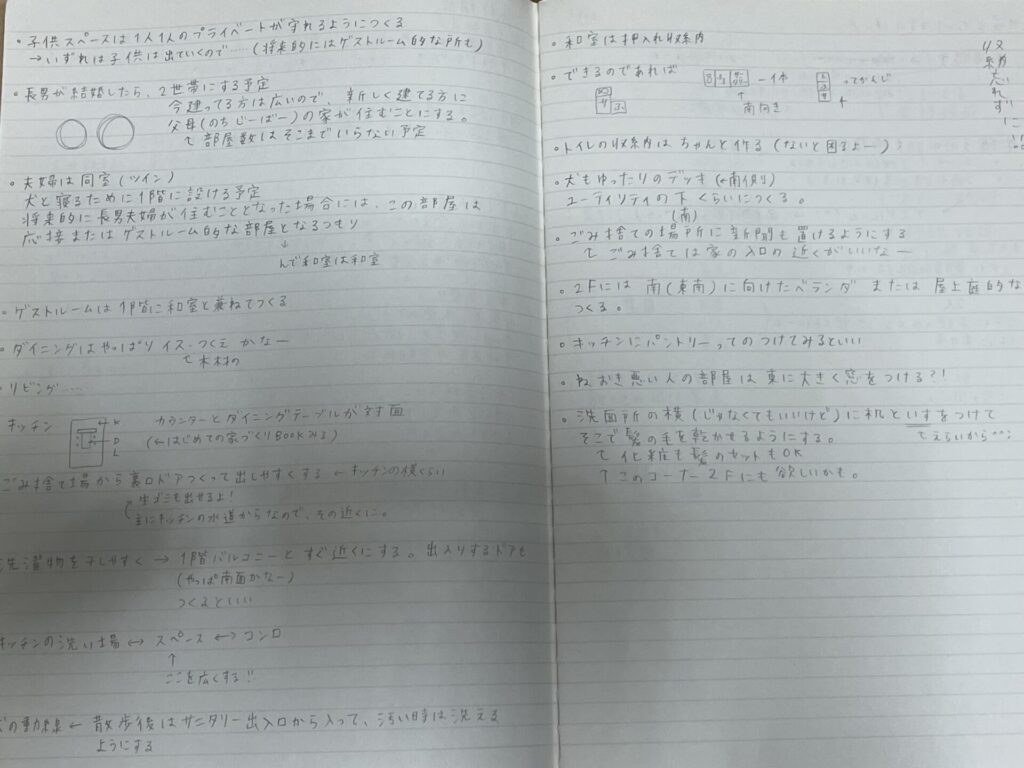 ・子供スペースは1人1人のプライベートが守れるようにつくる
→いずれは子供は出ていくので……(将来的にはゲストルーム的な所も)
・長男が結婚したら、2世帯にする予定
今建ってる方は広いので、新しく建てる方に
父母(のちじーばー)の家が住むことにする。
て部屋数はそこまでいらない予定
・夫婦は同室(ツイン)
犬と寝るために1階に設ける予定
将来的に長男夫婦が住むこととなった場合には、この部屋は
応接またはゲストルーム的な部屋となるつもり
↓
んで和室は和室
・ゲストルームは1階に和室と兼ねてつくる
・ダイニングはやっぱり イス・つくえ かなー
て木材の
・リビング……
キッチン
K
D
L
カウンターとダイニングテーブルが対面
(←はじめての家づくりBOOKみる)
ごみ捨て場から裏口ドアつくって出しやすくする ←キッチンの横くらい
生ゴミも出せるよ!
主にキッチンの水道からなので、その近くに。
洗濯物を干しやすく → 1階バルコニーとすぐ近くにする。出入りするドアも
(やっぱ南面かなー)
つくるといい
キッチンの洗い場 ↔ スペース ↔ コンロ
↑
ここを広くする!!
の動線 ← 散歩後はサニタリー出入口から入って、汚い時は洗える
ようにする
・和室は押入れ収納
・できるのであれば
一体
↑
南向き
ってかんじ
・トイレの収納はちゃんと作る(ないと困るよー)
・犬もゆったりのデッキ(←南側)
ユーティリティの下くらいにつくる。
(南)
・ごみ捨ての場所に新聞も置けるようにする
て ごみ捨ては家の入口の近くがいいなー
・2Fには 南(東南)に向けたベランダ または 屋上庭的な
つくる。
・キッチンにパントリーってのつけてみるといい
・ねおき悪い人の部屋は東に大きく窓をつける?!
・洗面所の横(じゃなくてもいいけど)に机といすをつけて
そこで髪の毛を乾かせるようにする。
てえらいから^^;
て 化粧も髪のセットもOK
↑このコーナー2Fにも欲しいかも。
収
納
忘
れ
ず
に